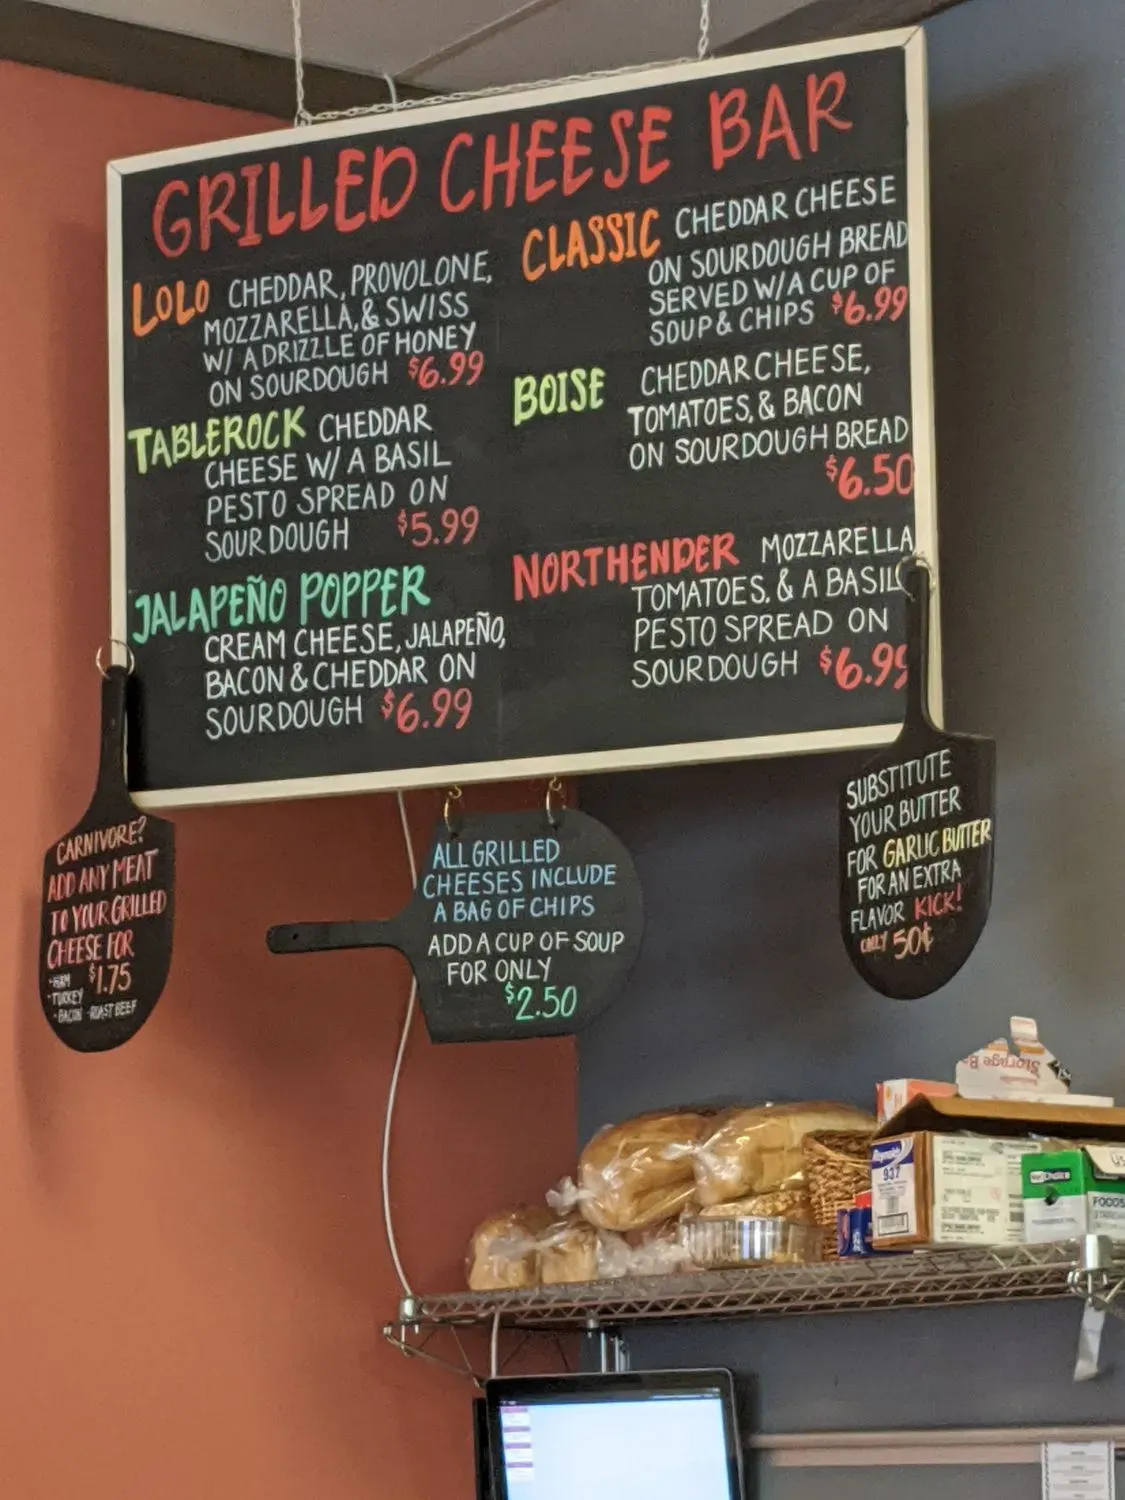 GRILLED CHEESE BAR
LOLO CHEDDAR, PROVOLONE,
MOZZARELLA, & SWISS
W/ A DRIZZLE OF HONEY
ON SOURDOUGH $6.99
TABLEROCK CHEDDAR
CHEESE W/ A BASIL
PESTO SPREAD ON
SOURDOUGH $5.99
JALAPEÑO POPPER
CREAM CHEESE, JALAPEÑO,
BACON & CHEDDAR ON
SOURDOUGH $6.99
CLASSIC CHEDDAR CHEESE
ON SOURDOUGH BREAD
SERVED W/A CUP OF
SOUP & CHIPS $6.99
BOISE CHEDDAR CHEESE,
TOMATOES, & BACON
ON SOURDOUGH BREAD
$6.50
NORTHENDER MOZZARELLA
TOMATOES, & A BASIL
PESTO SPREAD ON
SOURDOUGH $6.99
CARNIVORE?
ADD ANY MEAT
TO YOUR GRILLED
CHEESE FOR
$1.75
-HAM
-TURKEY
-BACON -ROAST BEEF
ALL GRILLED
CHEESES INCLUDE
A BAG OF CHIPS
ADD A CUP OF SOUP
FOR ONLY
$2.50
SUBSTITUTE
YOUR BUTTER
FOR GARLIC BUTTER
FOR AN EXTRA
FLAVOR KICK!
ONLY 50¢
Storage Ba
Reynolds
937
Choice
FOODS